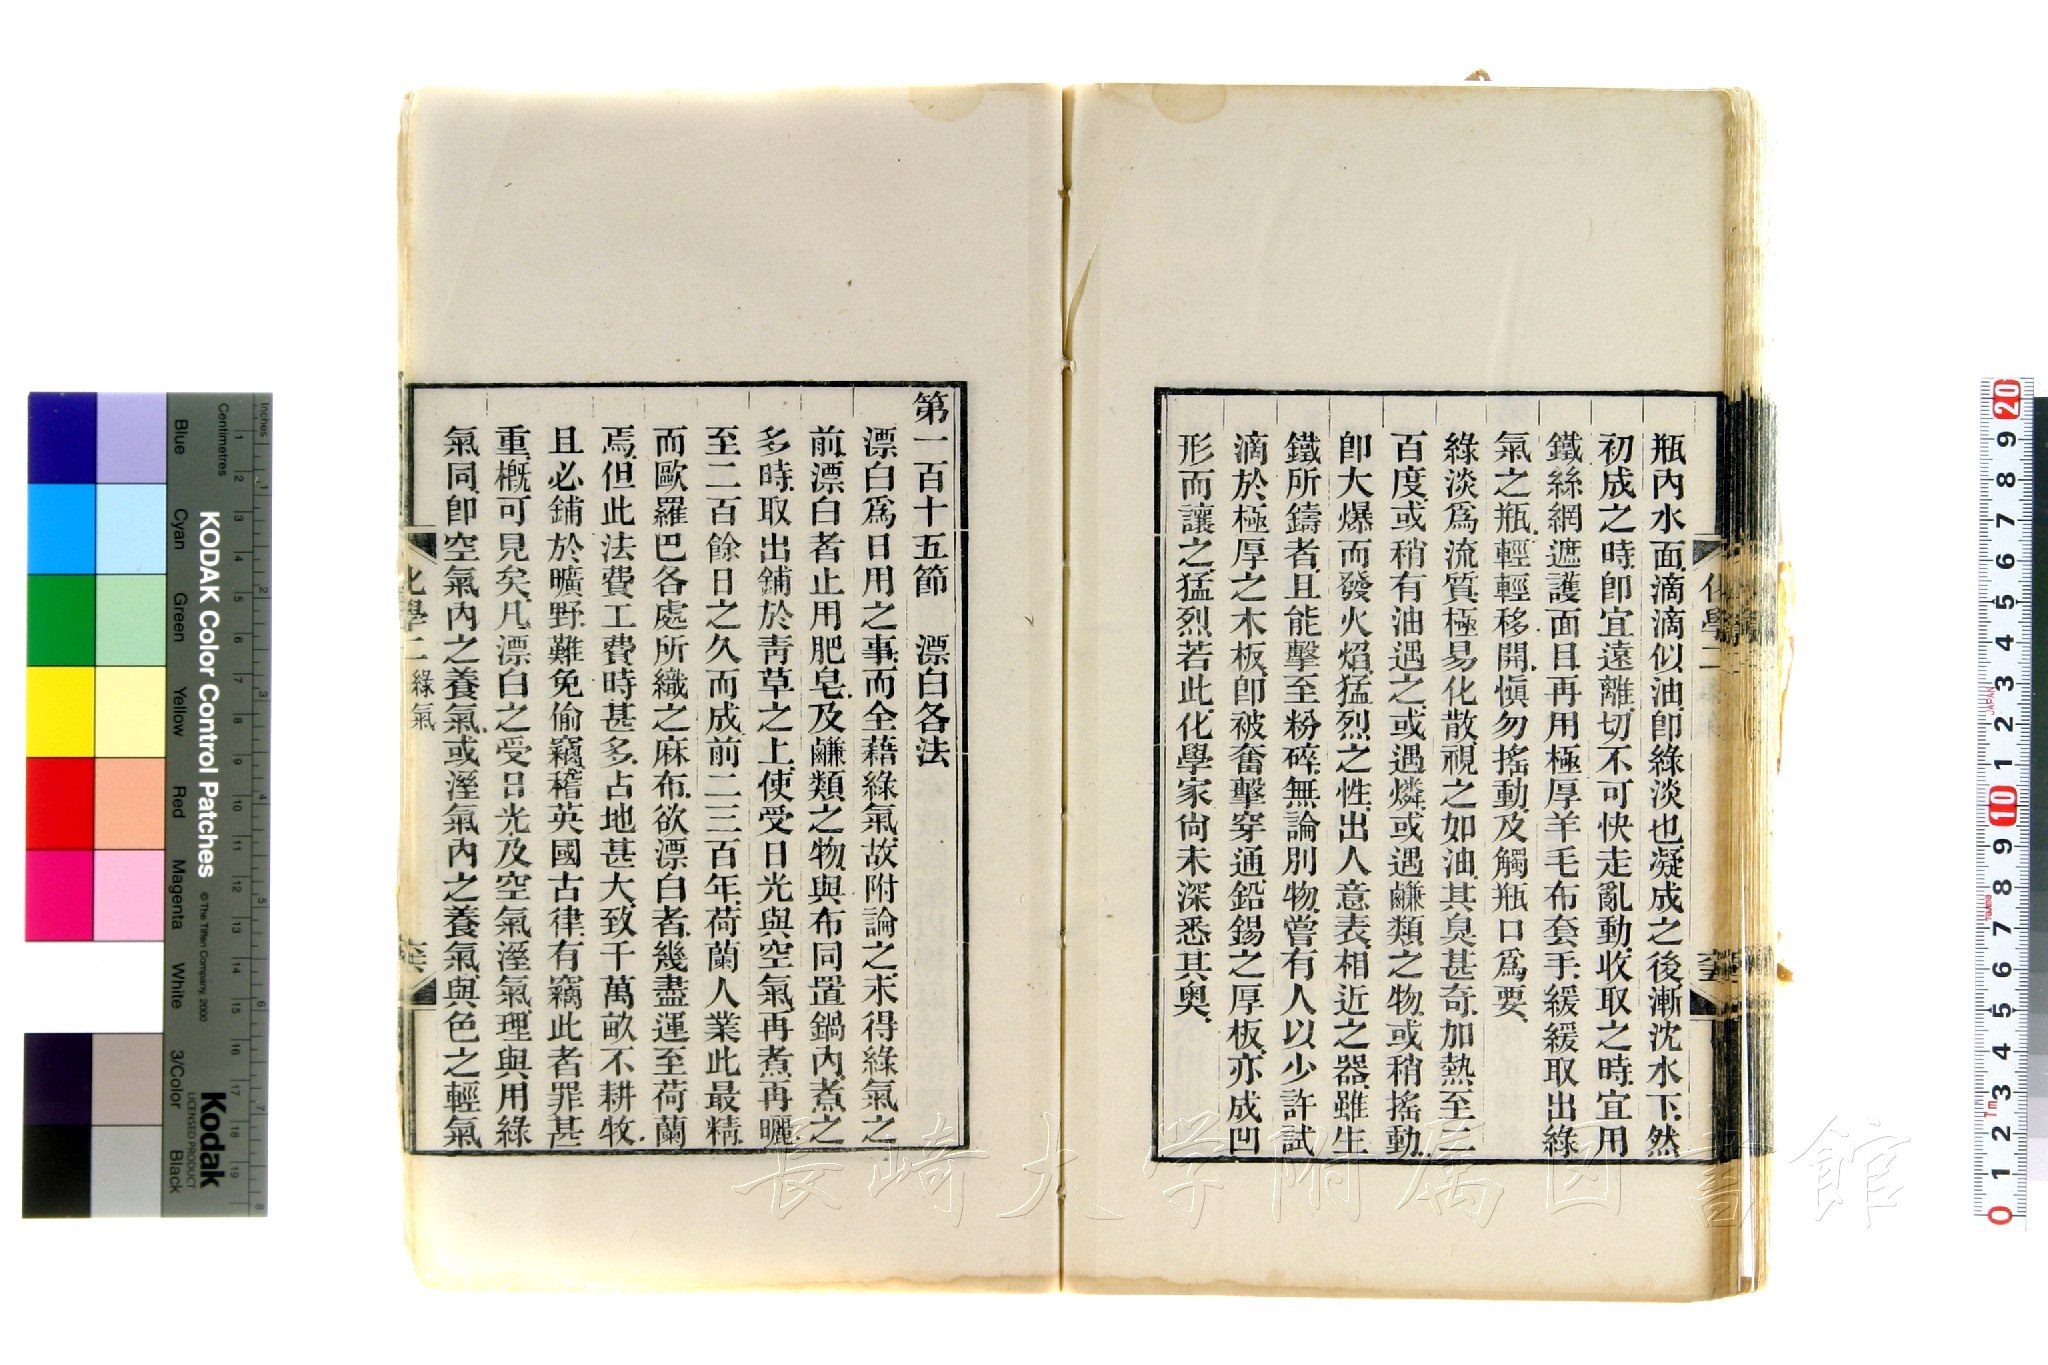 瓶內水面滴滴似油卽綠淡也凝成之後漸沈水下然
初成之時卽宜遠離切不可快走亂動收取之時宜用
鐵絲網遮護面目再用極厚羊毛布套手緩緩取出綠
氣之瓶輕輕移開愼勿搖動及觸瓶口爲要
綠淡爲流質極易化散視之如油其臭甚奇加熱至二
百度或稍有油遇之或遇燐或遇鹻類之物或稍搖動
卽大爆而發火焰猛烈之性出人意表相近之器雖生
鐵所鑄者且能擊至粉碎無論別物嘗有人以少許試
滴於極厚之木板卽被奮擊穿通鉛錫之厚板亦成凹
形而讓之猛烈若此化學家尙未深悉其奧
化學二
第一百十五節 漂白各法
漂白爲日用之事而全藉綠氣故附論之未得綠氣之
前漂白者止用肥皂及鹻類之物與布同置鍋內煮之
多時取出鋪於靑草之上使受日光與空氣再煮再曬
至二百餘日之久而成前二三百年荷蘭人業此最精
而歐羅巴各處所織之麻布欲漂白者幾盡運至荷蘭
焉但此法費工費時甚多占地甚大致千萬畝不耕牧
且必鋪於曠野難免偷竊稽英國古律有竊此者罪甚
重槪可見矣凡漂白之受日光及空氣溼氣理與用綠
氣同卽空氣內之養氣或溼氣內之養氣與色之輕氣
化學二 綠氣
長崎大学附属図書館
KODAK Color Control Patches
© The Tiffen Company, 2000
Kodak
LICENSED PRODUCT
Inches
Centimetres
Blue
Cyan
Green
Yellow
Red
Magenta
White
3/Color
Black
1 2 3 4 5 6 7 8 9 10 11 12 13 14 15 16 17 18 19
1 2 3 4 5 6 7 8
20 9 8 7 6 5 4 3 2 1 10 9 8 7 6 5 4 3 2 1 0
JAPAN